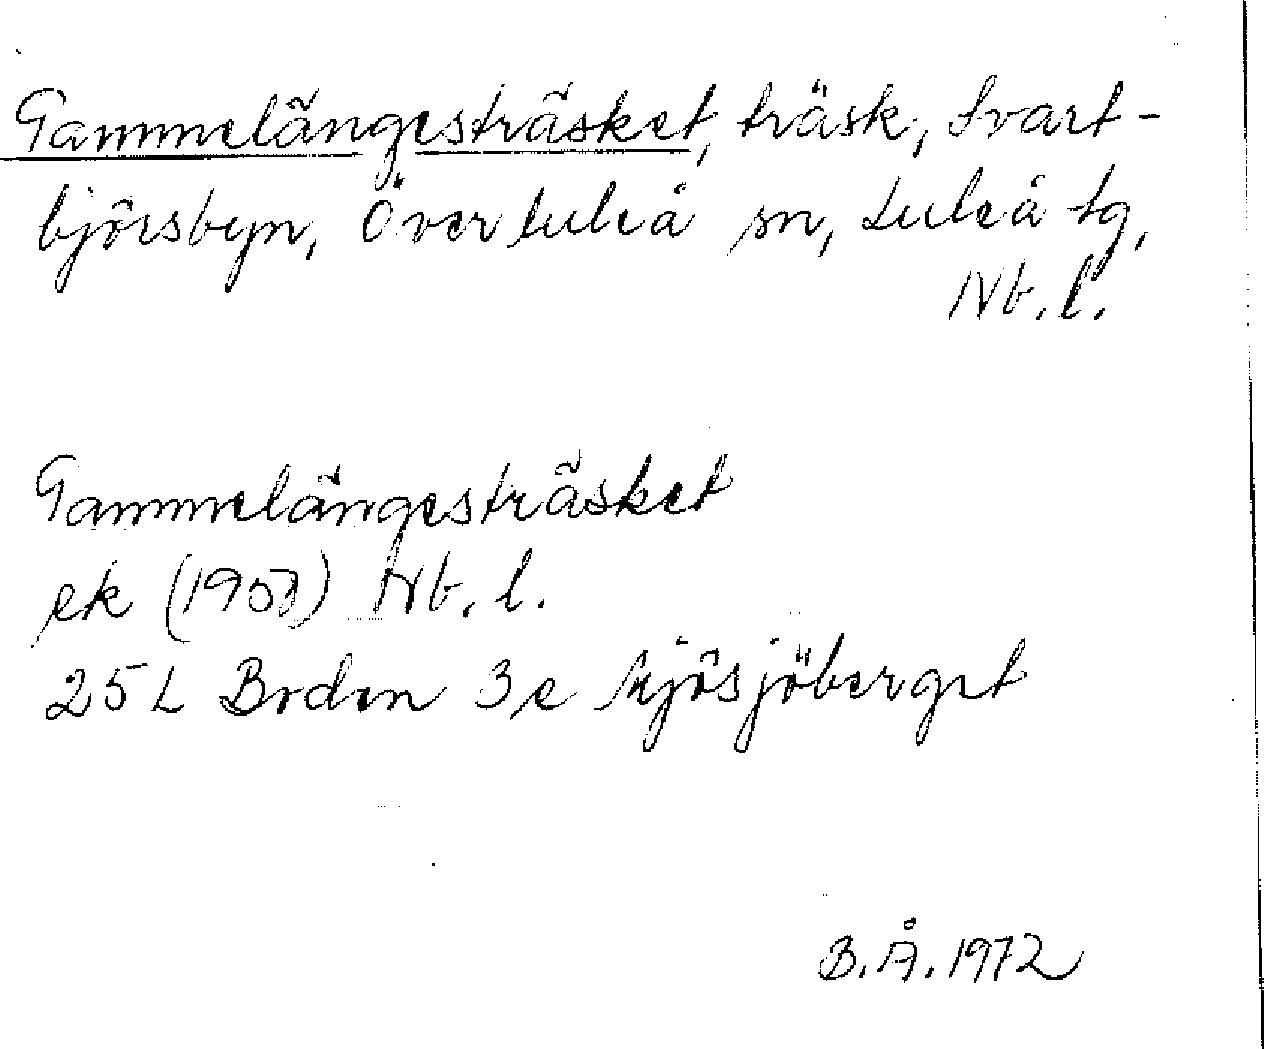 Gammelängesträsket, träsk, Svart-
björsbyn, Överluleå sn, Luleå tg,
Nb. l.
Gammelängesträsket
ek (1957) Nb. l.
25 L Boden 3e Mjösjöberget
B. Å. 1972